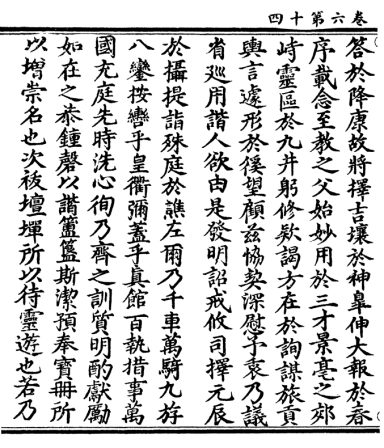 卷六第十四
答於降康故將擇吉壤於神皋伸大報於春
序載念至教之父始妙用於三才景亳之郊
峙靈區於九井躬修欵謁方在於詢謀旅貢
輿言遽形於徯望顧茲協契深慰予衷乃議
省巡用諧人欲由是發明詔戒攸司擇元辰
於攝提詣殊庭於譙左爾乃千車萬騎九斿
八鑾按轡乎皇衢彌蓋乎真館百執措事萬
國充庭先時洗心徇乃齊之訓質明酌獻勵
如在之恭鍾磬以諧簠簋斯潔預奉寶冊所
以增崇名也次祓壇墠所以待靈遊也若乃